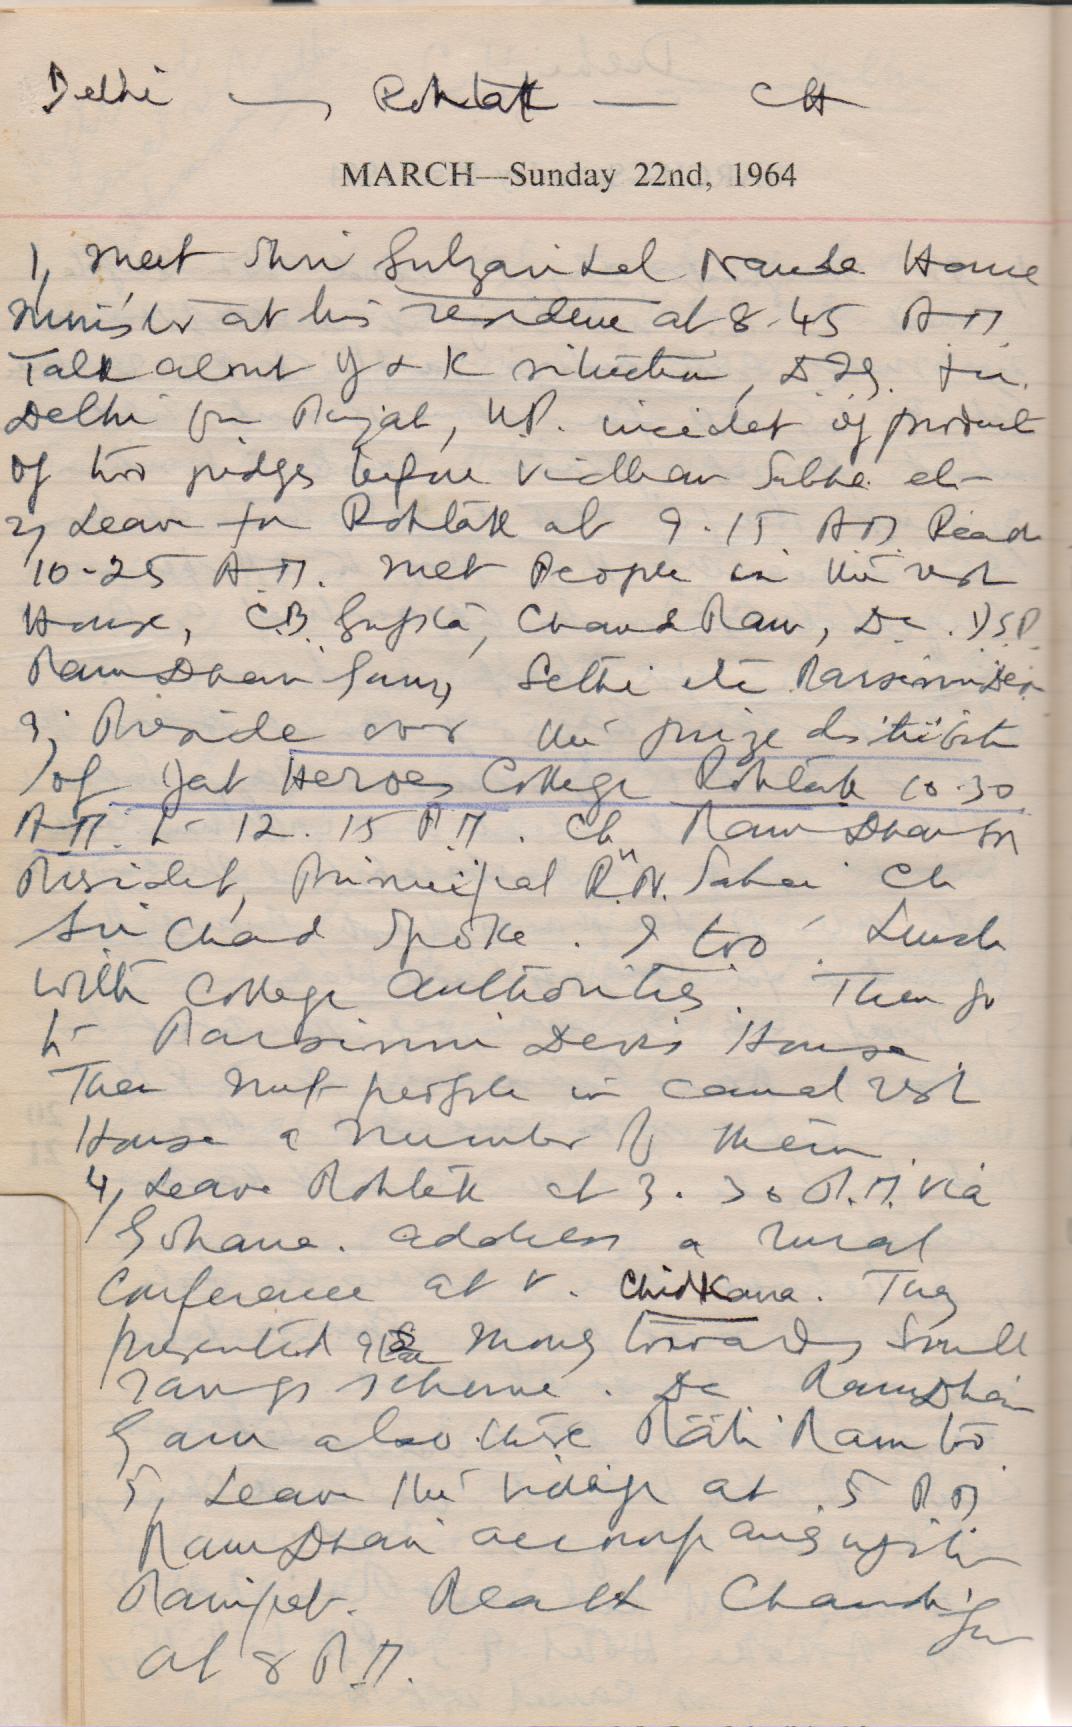 Delhi — Rohtak — CH
MARCH—Sunday 22nd, 1964
1, Meet Shri Gulzari Lal Nanda Home
Minister at his residence at 8.45 A.M.
Talk about J & K situation,
Delhi for Punjab, U.P. incident of
of two judges before Vidhan Sabha etc
2, Leave for Rohtak at 9.15 A.M. Reach
10-25 A.M. Met People in the rest
House, C.B. Gupta, Chand Ram, Dr.
Sethi etc Parsinni Devi
3, Preside over the prize distribution
of Jat Heroes College Rohtak 10.30
A.M. to 12.15 P.M. Ch Ram Dhan
President, Principal R.N. Sahai Ch
Sri Chand Spoke. I too. Lunch
with College authorities. Then go
to Parsinni Devi's House.
Then met people in canal rest
House a number of them.
4, Leave Rohtak at 3.30 P.M. via
Gohana. address a rural
Conference at V. Chidkana. They
presented money towards Small
savings scheme. Ram Dhan
also there Rati Ram too
5, Leave the village at 5 P.M
Ram Dhan accompanies upto
Panipat. Reach Chandigarh
at 8 P.M.